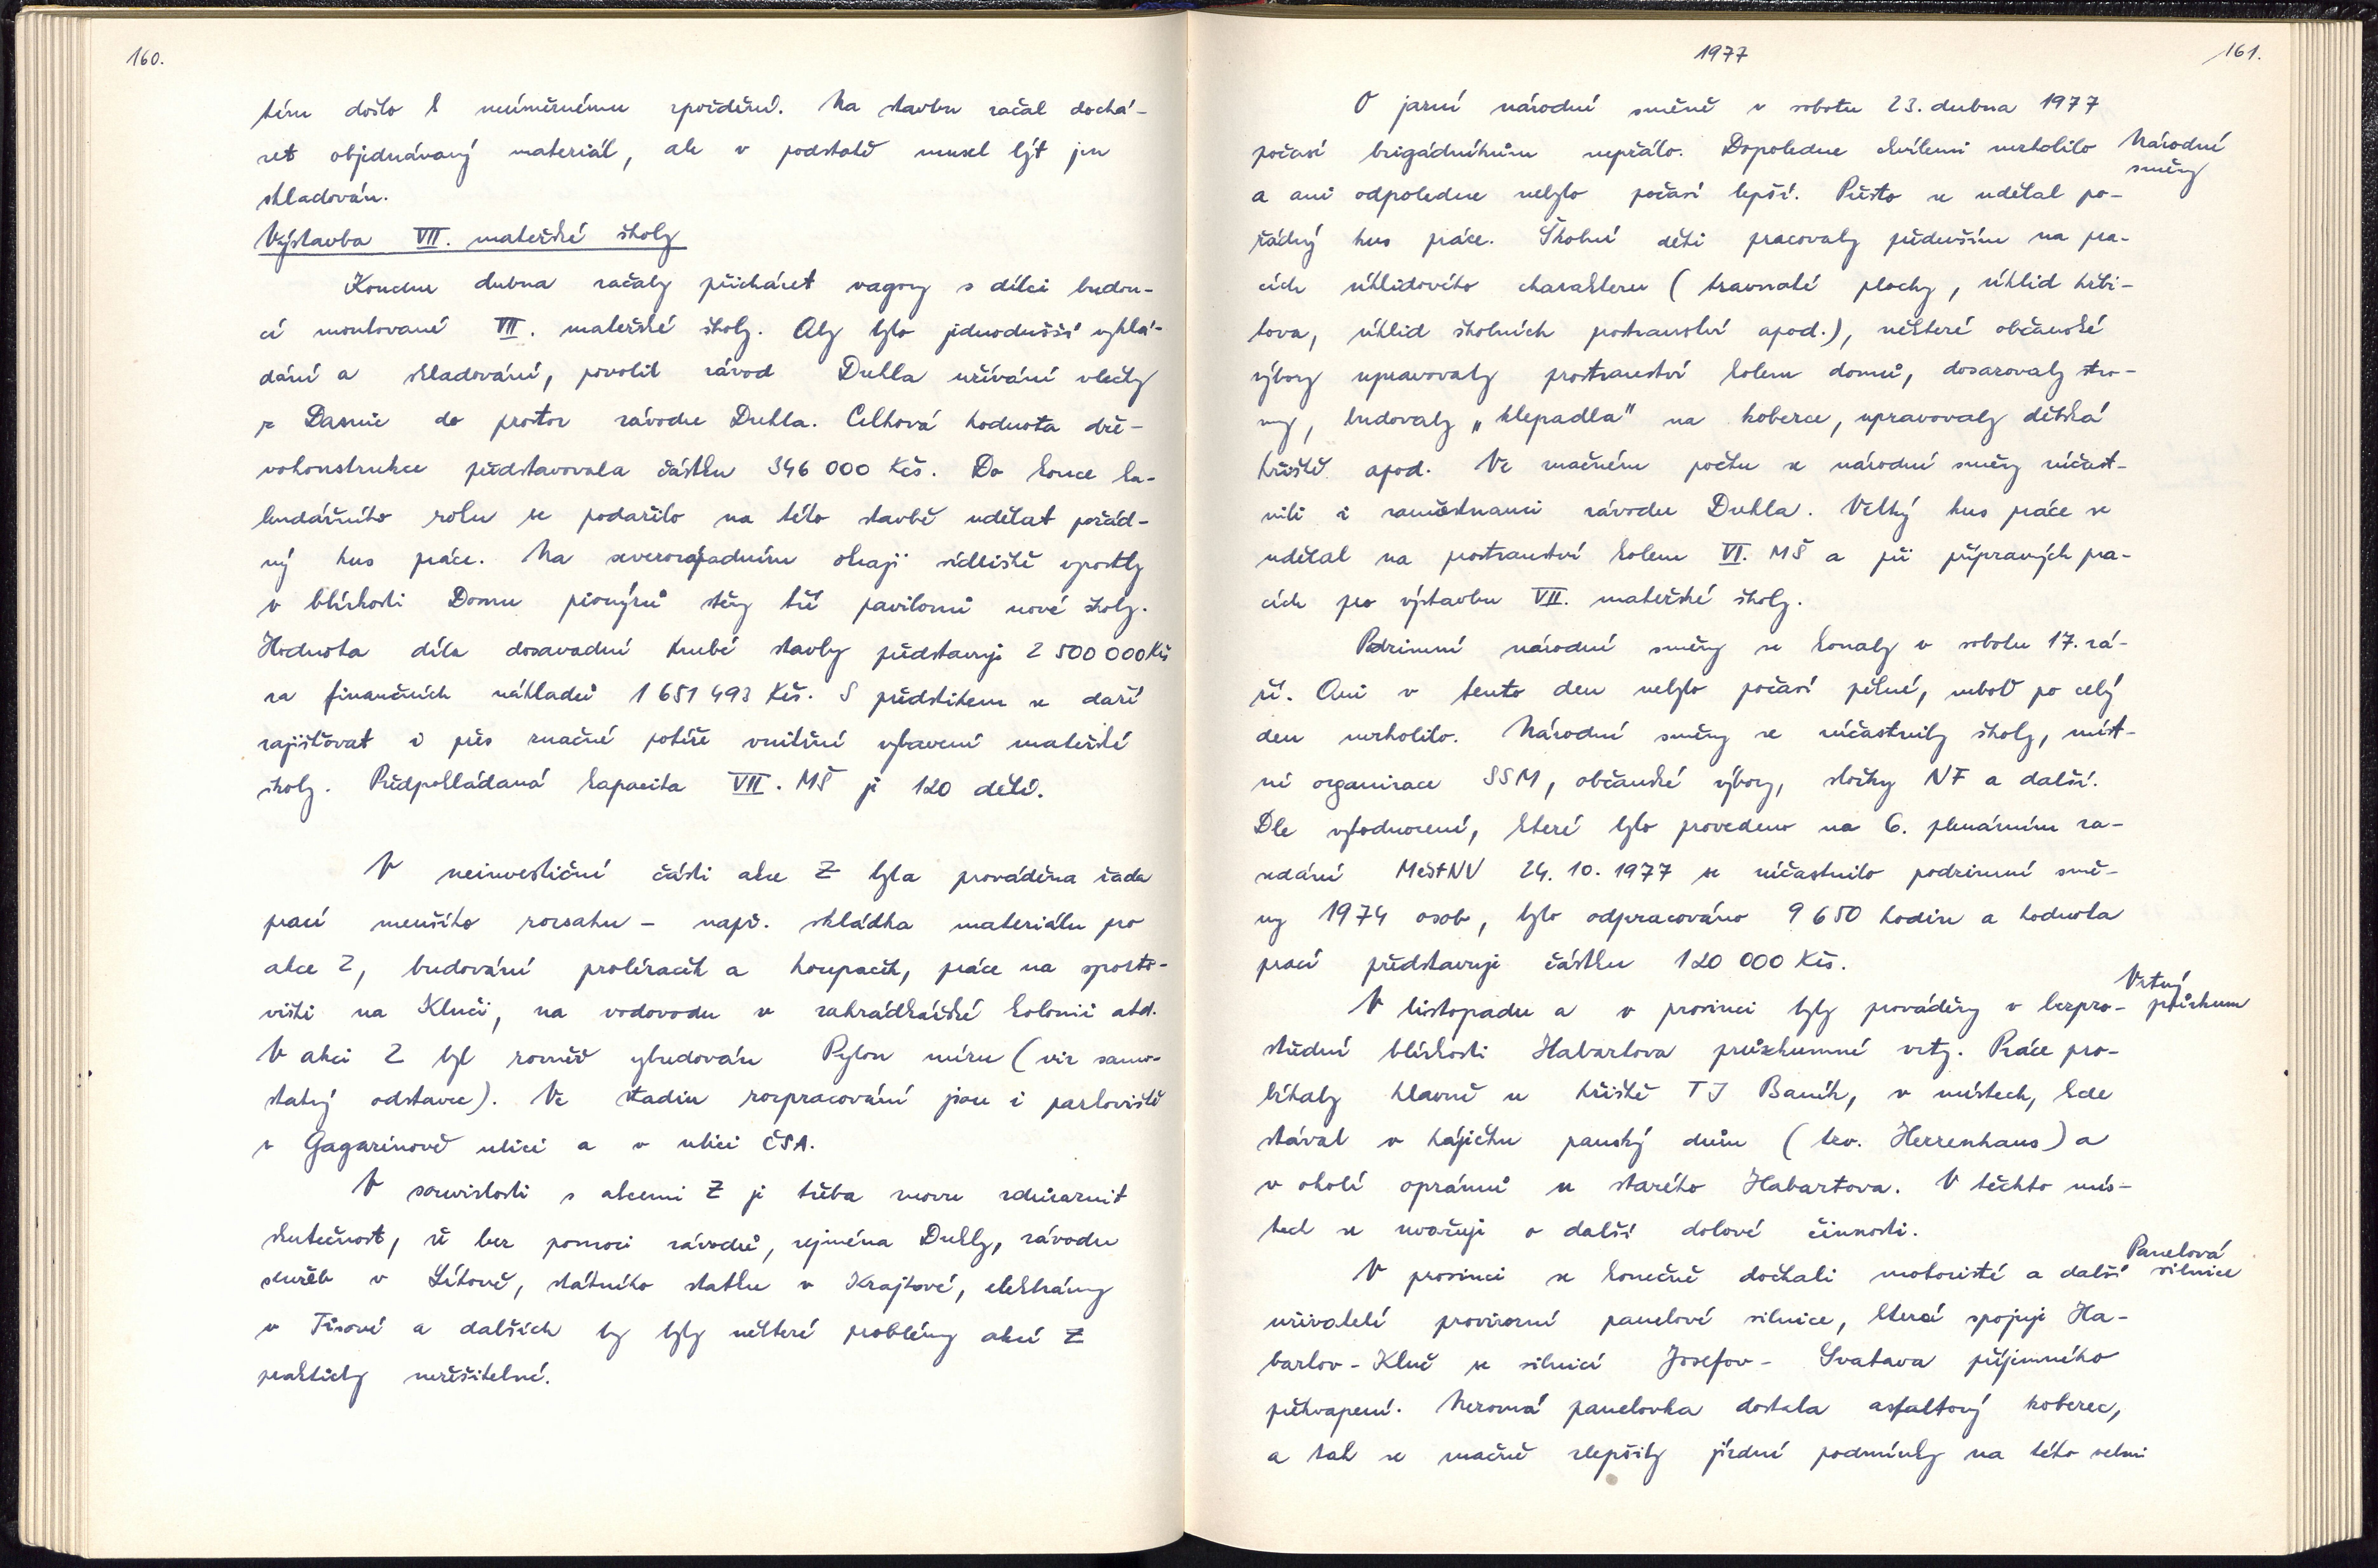 160.
tím došlo k neúměrnému zpoždění. Na stavbu začal dochá-
zet objednávaný materiál, ale v podstatě musel být jen
skladován.
Výstavba VII. mateřské školy
Koncem dubna začaly přicházet vagony s dílci budou-
cí montované VII. mateřské školy. Aby bylo jednodušší vyklá-
dání a skladování, povolil závod Dukla užívání vlečky
z Dasnic do prostor závodu Dukla. Celková hodnota dře-
vokonstrukce představovala částku 346 000 Kčs. Do konce ka-
lendářního roku se podařilo na této stavbě udělat pořád-
ný kus práce. Na severozápadním okraji sídliště vyrostly
v blízkosti Domu pionýrů stěny tří pavilonů nové školy.
Hodnota díla dosavadní hrubé stavby představuje 2 500 000 Kčs
za finančních nákladů 1 651 493 Kčs. S předstihem se daří
zajišťovat i přes značné potíže vnitřní vybavení mateřské
školy. Předpokládaná kapacita VII. MŠ je 120 dětí.
V neinvestiční části akce Z byla prováděna řada
prací menšího rozsahu - např. skládka materiálu pro
akce Z, budování prolézaček a houpaček, práce na sporto-
višti na Kluči, na vodovodu v zahrádkářské kolonii atd.
V akci Z byl rovněž vybudován Pylon míru (viz samo-
statný odstavec). Ve stadiu rozpracování jsou i parkoviště
v Gagarinově ulici a v ulici ČSA.
V souvislosti s akcemi Z je třeba znovu zdůraznit
skutečnost, že bez pomoci závodů, zejména Dukly, závodu
služeb v Lítově, státního statku v Krajkové, elektrárny
v Tisové a dalších by byly některé problémy akcí Z
prakticky neřešitelné.
1977
161.
O jarní národní směně v sobotu 23. dubna 1977
počasí brigádníkům nepřálo. Dopoledne chvílemi mrholilo
Národní
směny
a ani odpoledne nebylo počasí lepší. Přesto se udělal po-
řádný kus práce. Školní děti pracovaly především na pra-
cích úklidového charakteru (travnaté plochy, úklid hřbi-
tova, úklid školních prostranství apod.), některé občanské
výbory upravovaly prostranství kolem domů, dosazovaly stro-
my, budovaly „klepadla" na koberce, upravovaly dětská
hřiště apod. Ve značném počtu se národní směny účast-
nili i zaměstnanci závodu Dukla. Velký kus práce se
udělal na prostranství kolem VI. MŠ a při přípravných pra-
cích pro výstavbu VII. mateřské školy.
Podzimní národní směny se konaly v sobotu 17. zá-
ří. Ani v tento den nebylo počasí pěkné, neboť po celý
den mrholilo. Národní směny se účastnily školy, míst-
ní organizace SSM, občanské výbory, složky NF a další.
Dle vyhodnocení, které bylo provedeno na 6. plenárním za-
sedání MěstNV 24. 10. 1977 se účastnilo podzimní smě-
ny 1974 osob, bylo odpracováno 9 650 hodin a hodnota
prací představuje částku 120 000 Kčs.
V listopadu a v prosinci byly prováděny v bezpro-
Vrtný
průzkum
střední blízkosti Habartova průzkumné vrty. Práce pro-
bíhaly hlavně u hřiště TJ Baník, v místech, kde
stával v hájíčku panský dům (tzv. Herrenhaus) a
v okolí oprámů u starého Habartova. V těchto mís-
tech se uvažuje o další dolové činnosti.
V prosinci se konečně dočkali motoristé a další
Panelová
silnice
uživatelé provizorní panelové silnice, která spojuje Ha-
bartov - Kluč se silnicí Josefov - Svatava příjemného
překvapení. Nerovná panelovka dostala asfaltový koberec,
a tak se značně zlepšily jízdní podmínky na této velmi